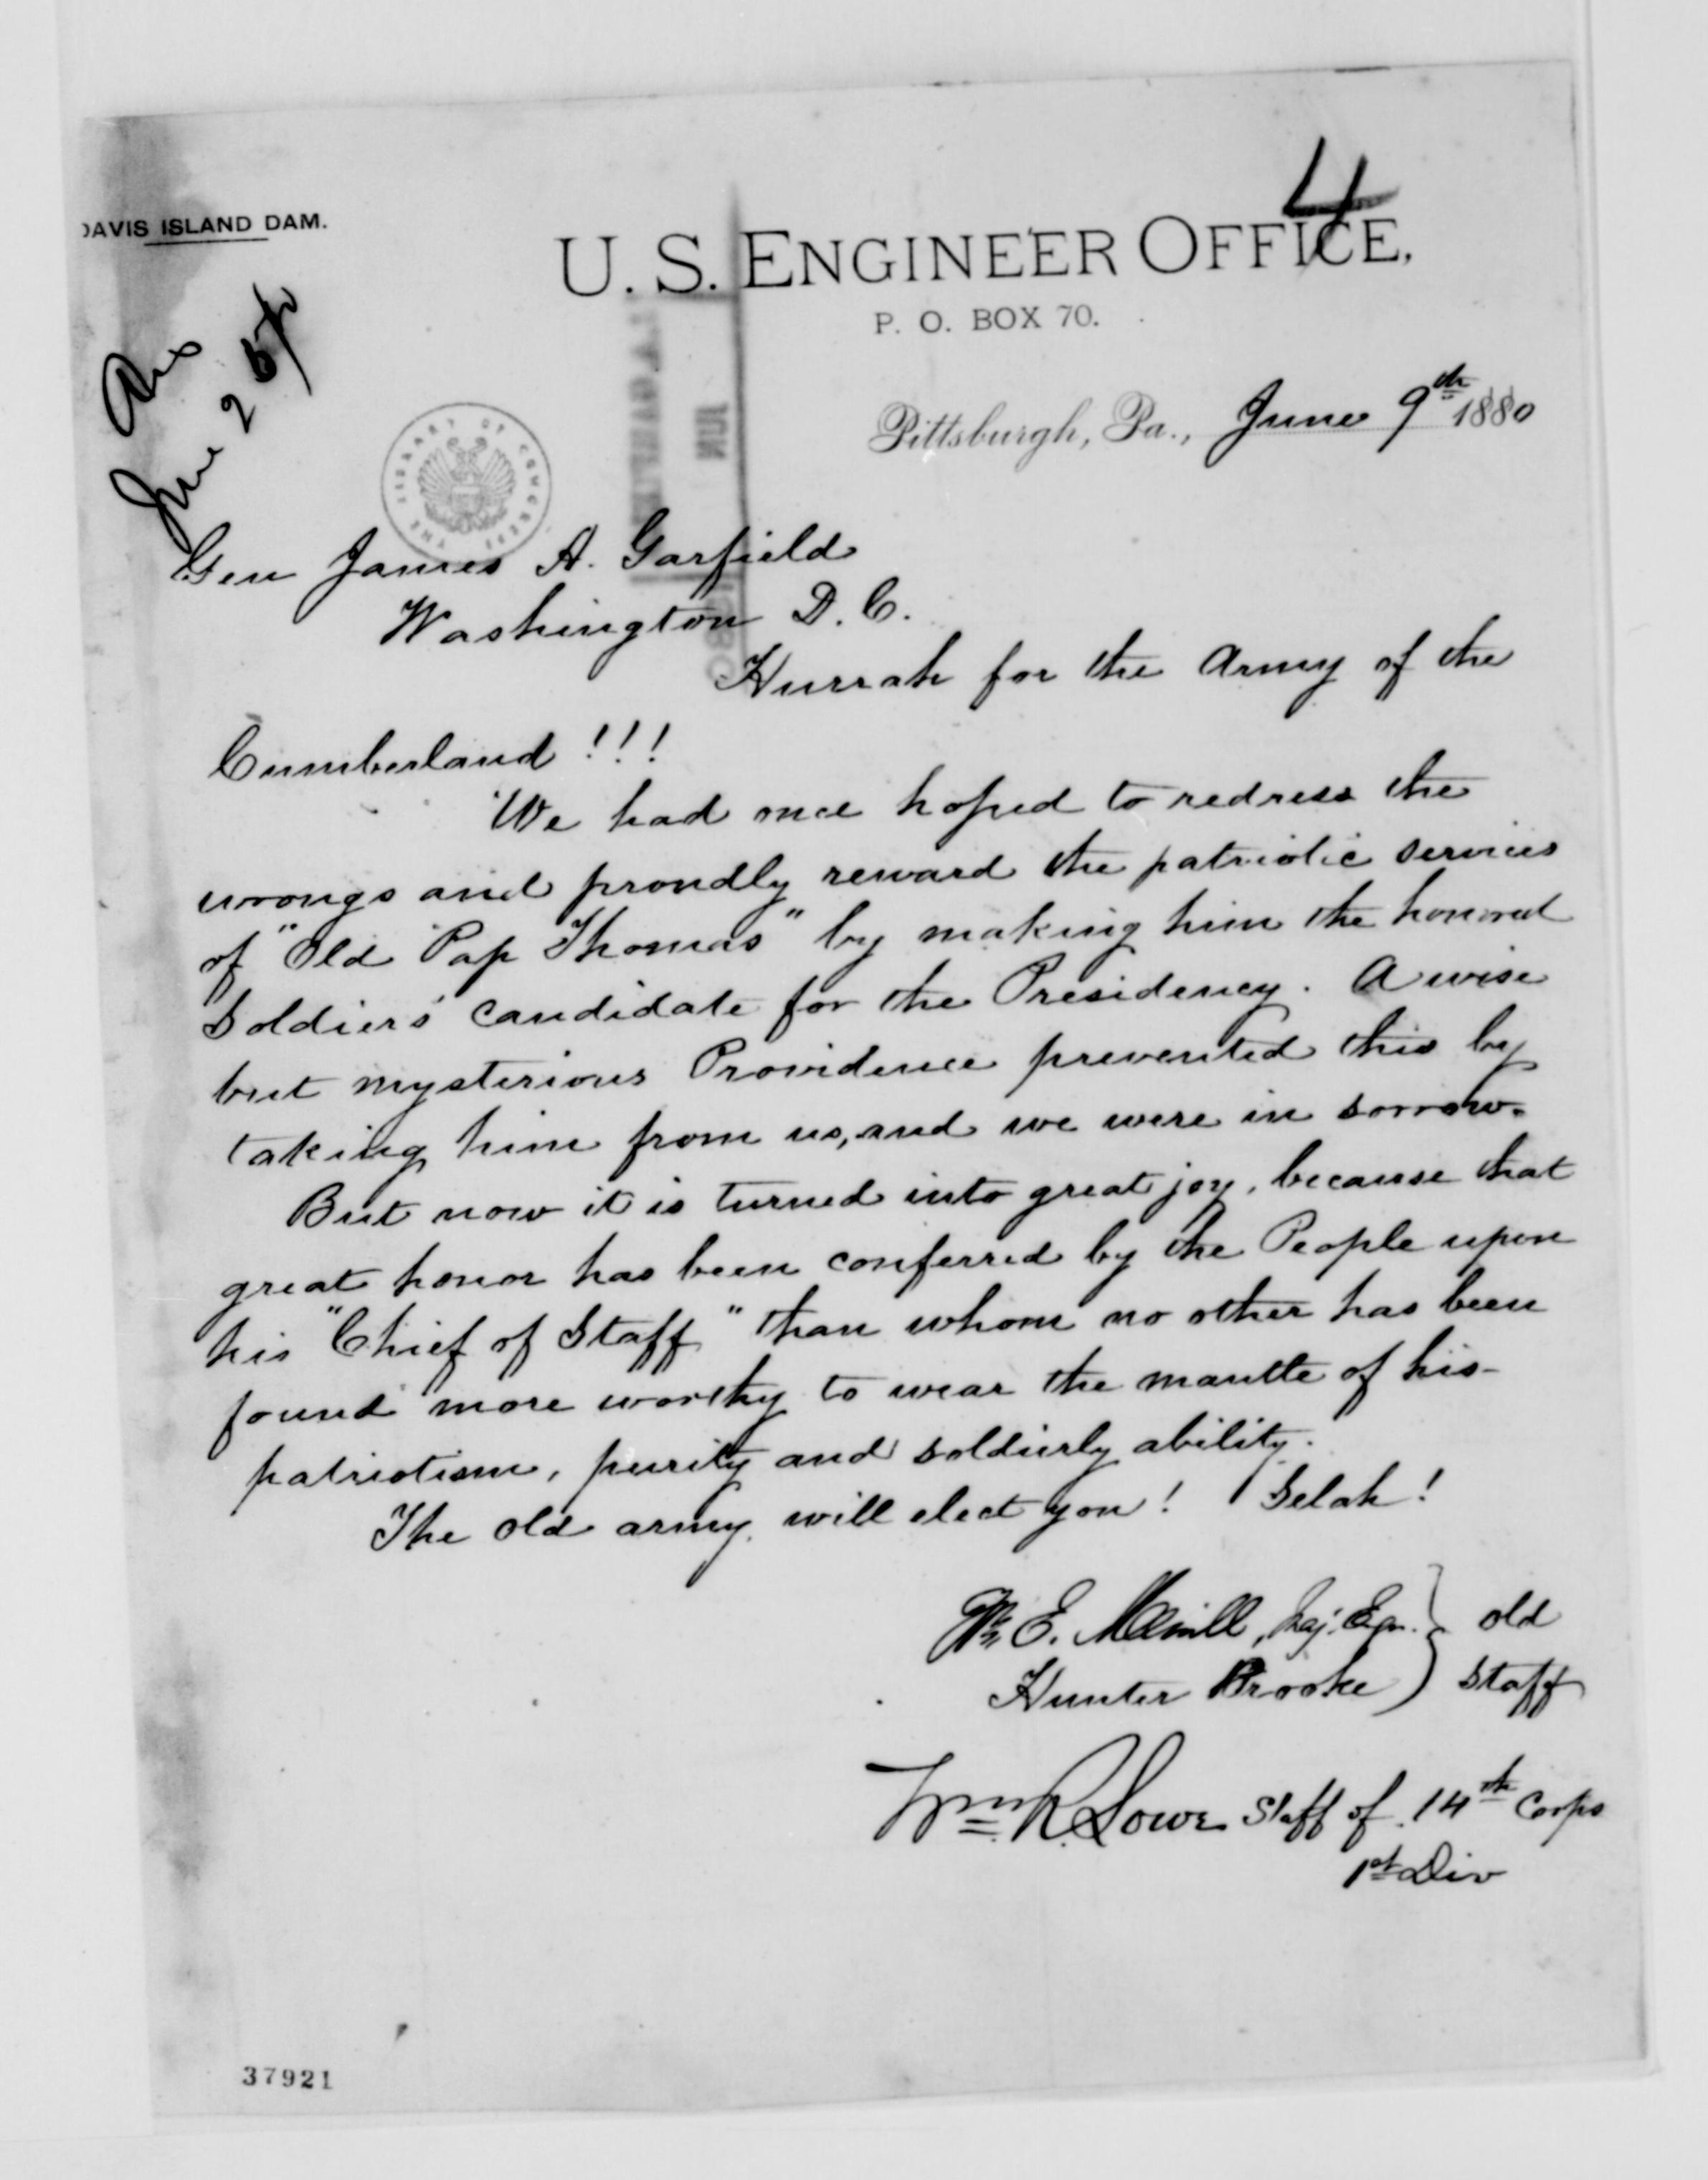 4
DAVIS ISLAND DAM.
U. S. ENGINEER OFFICE,
P. O. BOX 70.
Ans
June 25/80
Pittsburgh, Pa., June 9th 1880
THE LIBRARY OF CONGRESS
Gen James A. Garfield
Washington D. C.
Hurrah for the Army of the
Cumberland!!!
We had once hoped to redress the
wrongs and proudly reward the patriotic services
of "Old Pap Thomas" by making him the honored
Soldiers' candidate for the Presidency. A wise
but mysterious Providence prevented this by
taking him from us, and we were in sorrow.
But now it is turned into great joy, because that
great honor has been conferred by the People upon
his "Chief of Staff" than whom no other has been
found more worthy to wear the mantle of his
patriotism, purity and soldierly ability.
The old army will elect you! Selah!
Wm. E. Merrill, Maj. Eng. } old
Hunter Brooke } Staff
Wm R. Lowe Staff of 14th Corps
1st Div
37921